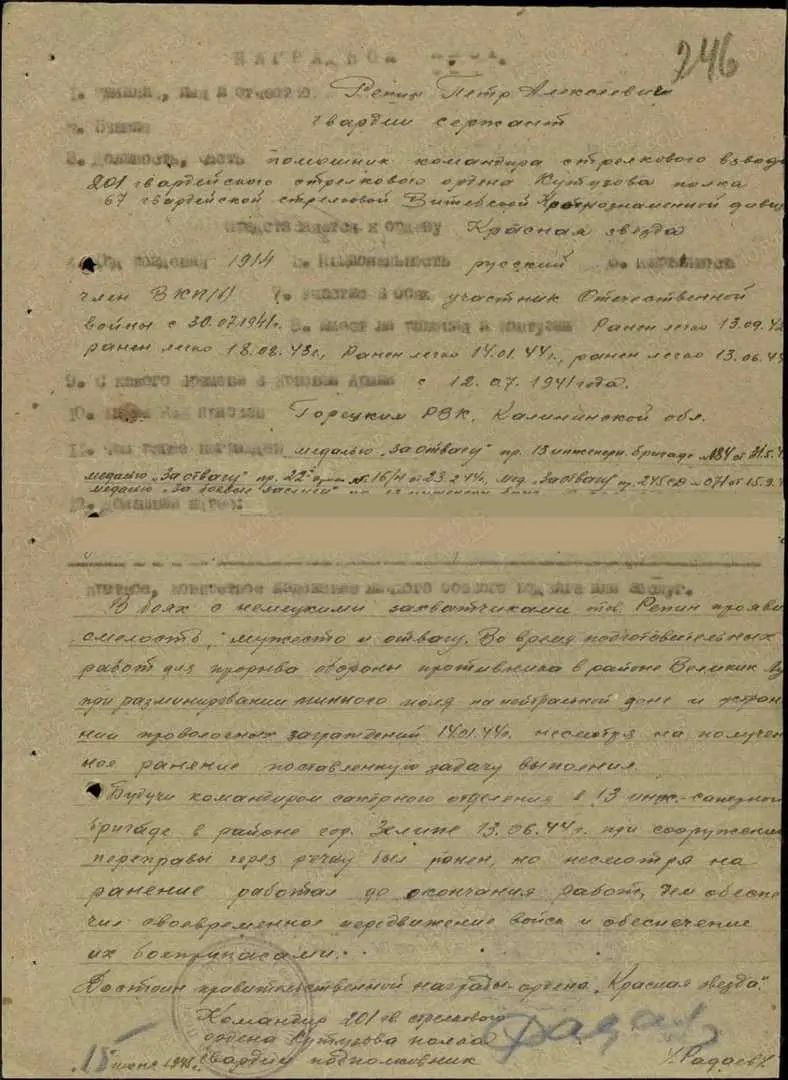 НАГРАДНОЙ ЛИСТ.
246
1. Фамилия, имя и отчество Репин Петр Алексеевич
2. Звание гвардии сержант
3. Должность, часть помошник командира стрелкового взвода
201 гвардейского стрелкового ордена Кутузова полка
67 гвардейской стрелковой Витебской Краснознаменной дивиз
представляется к ордену Красная звезда
4. Год рождения 1914 5. Национальность русский 6. Партийность
член ВКП(б) 7. Участие в боях участник Отечественной
войны с 30.07.1941г. 8. Имеет ли ранения и контузии Ранен легко 13.09.42
ранен легко 18.08.43г, Ранен легко 14.01.44г., ранен легко 13.06.44
9. С какого времени в Красной Армии с 12.07.1941 года.
10. Каким РВК призван РВК, Калининской обл.
11. Чем ранее награжден медалью "За отвагу" пр. 13 инженерн. бригаде
медалью "За отвагу" пр. 22 № 16/н от 23.2.44г, мед. "За отвагу" пр. 245 СД № 071 от 15.9.4
медалью "За боевые заслуги"
12. Домашний адрес:
Краткое, конкретное изложение личного боевого подвига или заслуг.
В боях с немецкими захватчиками тов. Репин прояви
смелость, мужесто и отвагу. Во время подготовительных
работ для прорыва обороны противника в районе Великик Лу
при разминировании минного поля на нейтральной зоне и устран
нии проволочных заграждений 14.01.44г. несмотря на получен
ное ранение поставленную задачу выполнил.
Будучи командиром саперного отделения в 13 инж.-саперной
бригаде в районе гор. 13.06.44г. при сооружении
переправы через речку был ранен, но несмотря на
ранение работал до окончания работ, чем обеспе
чил своевременное передвижение войск и обеспечение
их боеприпасами.
Достоин правительственной награды-ордена "Красная звезда".
Командир 201 гв стрелкового
ордена Кутузова полка
гвардии подполковник /Радаев/
"15" 1945г.